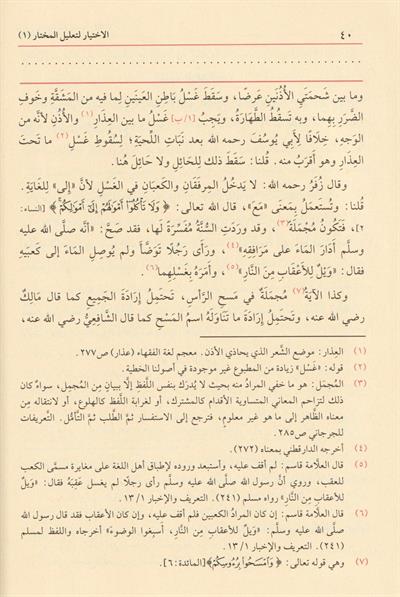 ٤٠ الاختيار لتعليل المختار (١)
وما بين شحمتَيِ الأُذُنَينِ عَرضًا، وسَقَطَ غَسْلُ باطِنِ العَينَينِ لِما فيه من المَشَقَّةِ وخَوفِ
الضَّرَرِ بِهِما، وبه تَسقُطُ الطَّهارَةُ، ويَجِبُ [١/ب] غَسْلُ ما بين العِذَارِ(١) والأُذُنِ لأنَّه من
الوَجهِ، خِلَافًا لأَبِي يُوسُفَ رحمه الله بعد نَبَاتِ اللِّحيَةِ؛ لِسُقُوطِ غَسْلِ(٢) ما تَحتَ
العِذَارِ وهو أَقرَبُ منه. قُلنا: سَقَطَ ذلك لِلحَائِلِ ولا حَائِلَ هُنا.
وقال زُفَرُ رحمه الله: لا يَدخُلُ المِرفَقَانِ والكَعبَانِ في الغَسْلِ لأنَّ «إلى» لِلغَايَةِ.
قُلنا: وتُستَعمَلُ بِمَعنَى «مَعَ»، قال الله تعالى: ﴿وَلَا تَأْكُلُوٓا۟ أَمْوَٰلَهُمْ إِلَىٰٓ أَمْوَٰلِكُمْ﴾ [النساء:
٢]، فَتَكُونُ مُجْمَلَةً(٣)، وقد ورَدَتِ السُّنَّةُ مُفَسِّرَةً لَها، فقد صَحَّ: «أنَّه صلَّى الله عليه
وسلَّم أَدَارَ المَاءَ على مَرَافِقِهِ»(٤)، ورَأَى رَجُلًا تَوَضَّأَ ولم يُوصِلِ المَاءَ إلى كَعبَيهِ
فقال: «وَيْلٌ لِلأَعْقَابِ مِنَ النَّارِ»(٥)، وأَمَرَهُ بِغَسْلِهِما(٦).
وكذا الآيَةُ(٧) مُجمَلَةٌ في مَسحِ الرَّأسِ، تَحتَمِلُ إرَادَةَ الجَمِيعِ كما قال مَالِكٌ
رضي الله عنه، وتَحتَمِلُ إرَادَةَ ما تَنَاوَلَهُ اسمُ المَسْحِ كما قال الشَّافِعِيُّ رضي الله عنه،
(١) العِذَار: موضع الشَّعر الذي يحاذي الأذن. معجم لغة الفقهاء (عذار) ص٢٧٧.
(٢) قوله: «غَسْل» زيادة من المطبوع غير موجودة في أصولنا الخطية.
(٣) المُجمَل: هو ما خفي المراد منه بحيث لا يُدرَك بنفس اللَّفظ إلَّا ببيان مِن المُجمِل، سواء كان
ذلك لتزاحم المعاني المتساوية الأقدام كالمشترك، أو لغرابة اللَّفظ كالهلوع، أو لانتقاله مِن
معناه الظَّاهر إلى ما هو غير معلوم، فترجع إلى الاستفسار ثمَّ الطَّلب ثمَّ التَّأمُّل. التَّعريفات
للجرجاني ص٢٨٥.
(٤) أخرجه الدارقطني بمعناه (٢٧٢).
(٥) قال العلَّامة قاسم: لم أقف عليه، وأستبعد وروده لإطباق أهل اللغة على مغايرة مسمَّى الكعب
للعقب، وروي أنَّ رسول الله صلَّى الله عليه وسلَّم رأى رجلًا لم يغسل عَقِبَهُ فقال: «وَيلٌ
للأعقابِ مِن النَّارِ» رواه مسلم (٢٤١). التعريف والإخبار ١/ ١٣.
(٦) قال العلَّامة قاسم: إن كان المراد الكعبين فلم أقف عليه، وإن كان الأعقاب فقد قال رسول الله
صلَّى الله عليه وسلَّم: «وَيلٌ للأعقابِ مِن النَّارِ، أَسبِغوا الوضوءَ» أخرجاه واللفظ لمسلم
(٢٤١). التعريف والإخبار ١/ ١٣.
(٧) وهي قوله تعالى: ﴿وَٱمْسَحُوا۟ بِرُءُوسِكُمْ﴾ [المائدة: ٦].